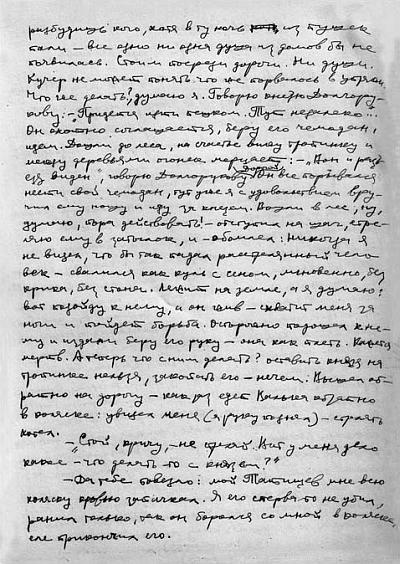 разбудишь кого, хотя в ту ночь из пушек
пали – все одно ни одна душа из домов бы не
появилась. Стоим посреди дороги. Ни души.
Кучер не может понять что же порвалось в упряжи.
Что же делать? думаю я. Говорю князю Долгору-
кову: – Придется идти пешком. Тут недалеко...
Он охотно соглашается, беру его чемодан,
идем. Дошли до леса, на счастье вижу тропинку и
между деревьями огонек мерцает: – „Вон и разъ-
езд виден" говорю Долгорукову. Он все порывался
нести свой чемодан, тут уже я с удовольствием вру-
чил ему ношу и иду за князем. Вошли в лес, ну,
думаю, пора действовать! – отступил на шаг, стре-
ляю ему в затылок, и – обомлел: Никогда я
не видел, что бы так падал расстрелянный чело-
век – свалился как куль с сеном, мгновенно, без
крика, без стона. Лежит на земле, а я думаю:
вот подойду к нему, а он жив – схватит меня за
ноги и пойдет борьба. Осторожно подошел к не-
му и издали беру его руку – она как плеть. Кажется
мертв. А теперь что с ним делать? оставить князя на
тропинке нельзя, закопать его – нечем. Вышел об-
ратно на дорогу – как раз едет обратно
в коляске: увидел меня (я руку поднял) – стрелять
хотел.
– „Стой, кричу, – не стреляй. Вот у меня дело
какое – что делать-то с князем?"
– Да тебе повезло: мой Татищев мне всю
коляску кровью запачкал. Я его стерва-то не убил,
ранил только, так он боролся со мной в коляске,
еле прикончил его.